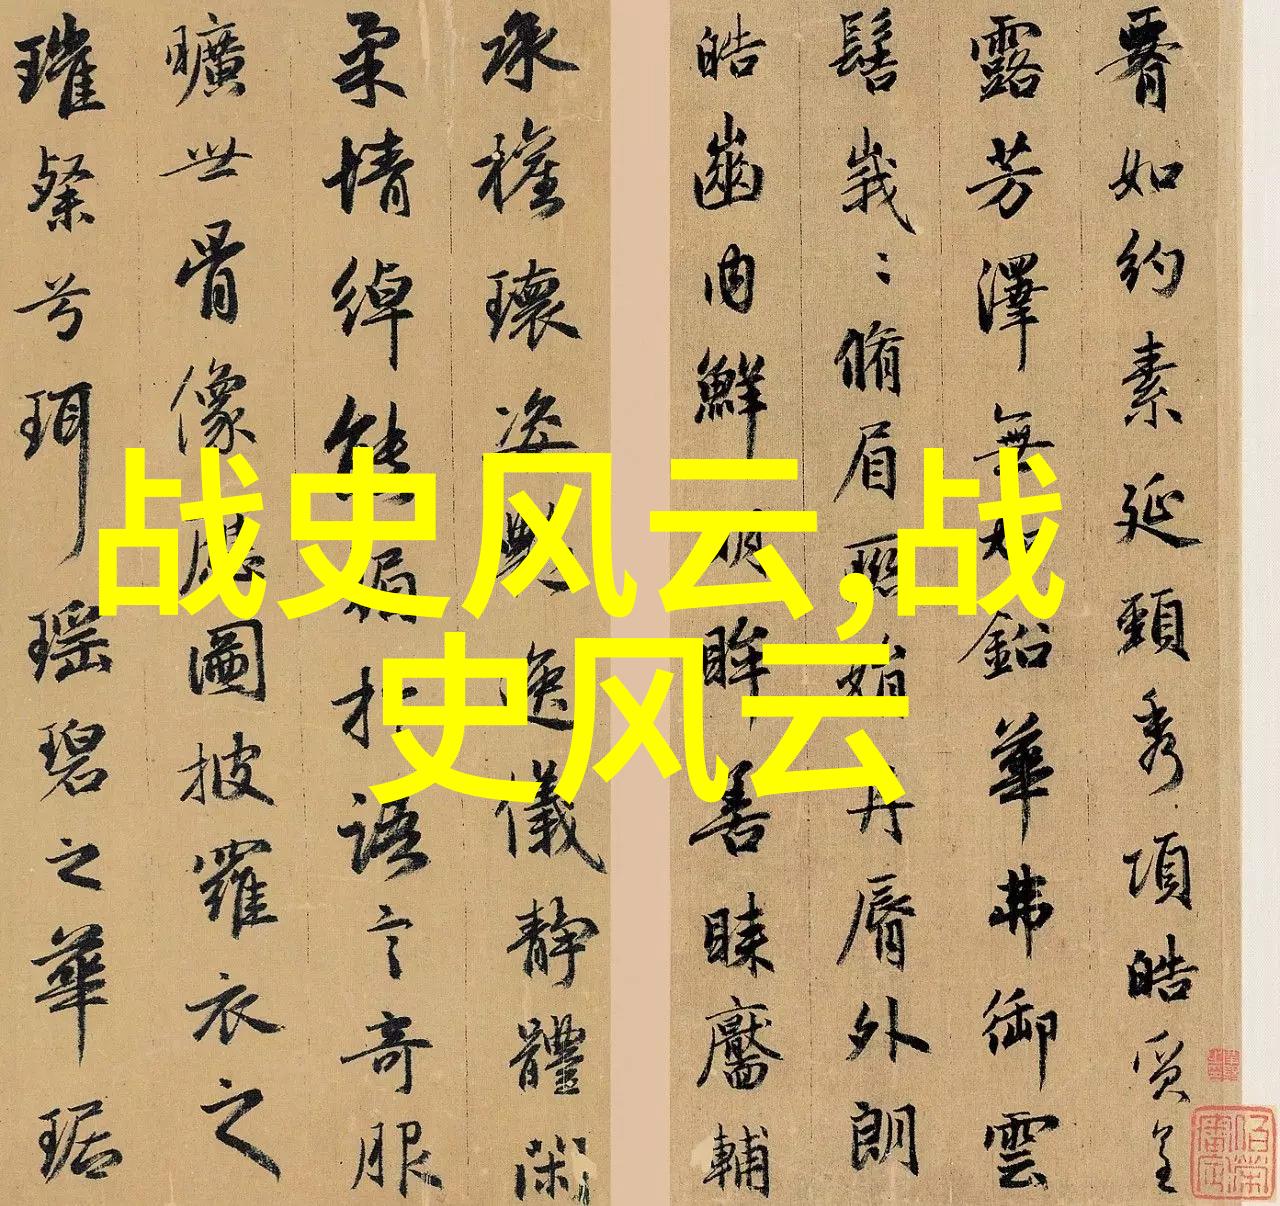 战史风云,战
史风云
如約素延頸秀項皓質呈
露芳澤無加鉛華弗御雲
髻峩〻脩眉聯娟丹脣外朗
皓齒内鮮明眸善睞靨輔
承權瓌姿豔逸儀靜體閑
柔情綽態媚於語言奇服
曠世骨像應圖披羅衣之
璀粲兮珥瑤碧之華琚